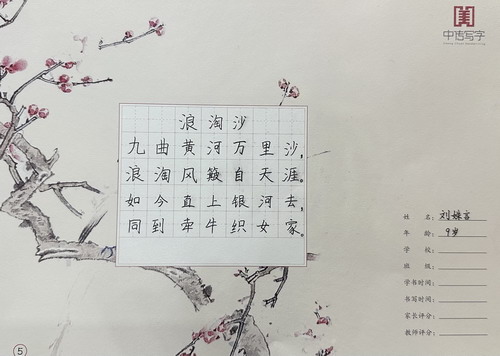 中语写字
浪淘沙
九曲黄河万里沙，
浪淘风簸自天涯。
如今直上银河去，
同到牵牛织女家。
姓 名：刘姝言
年 龄：9岁
学 校：
班 级：
学书时间：
书写时间：
家长评分：
教师评分：
5